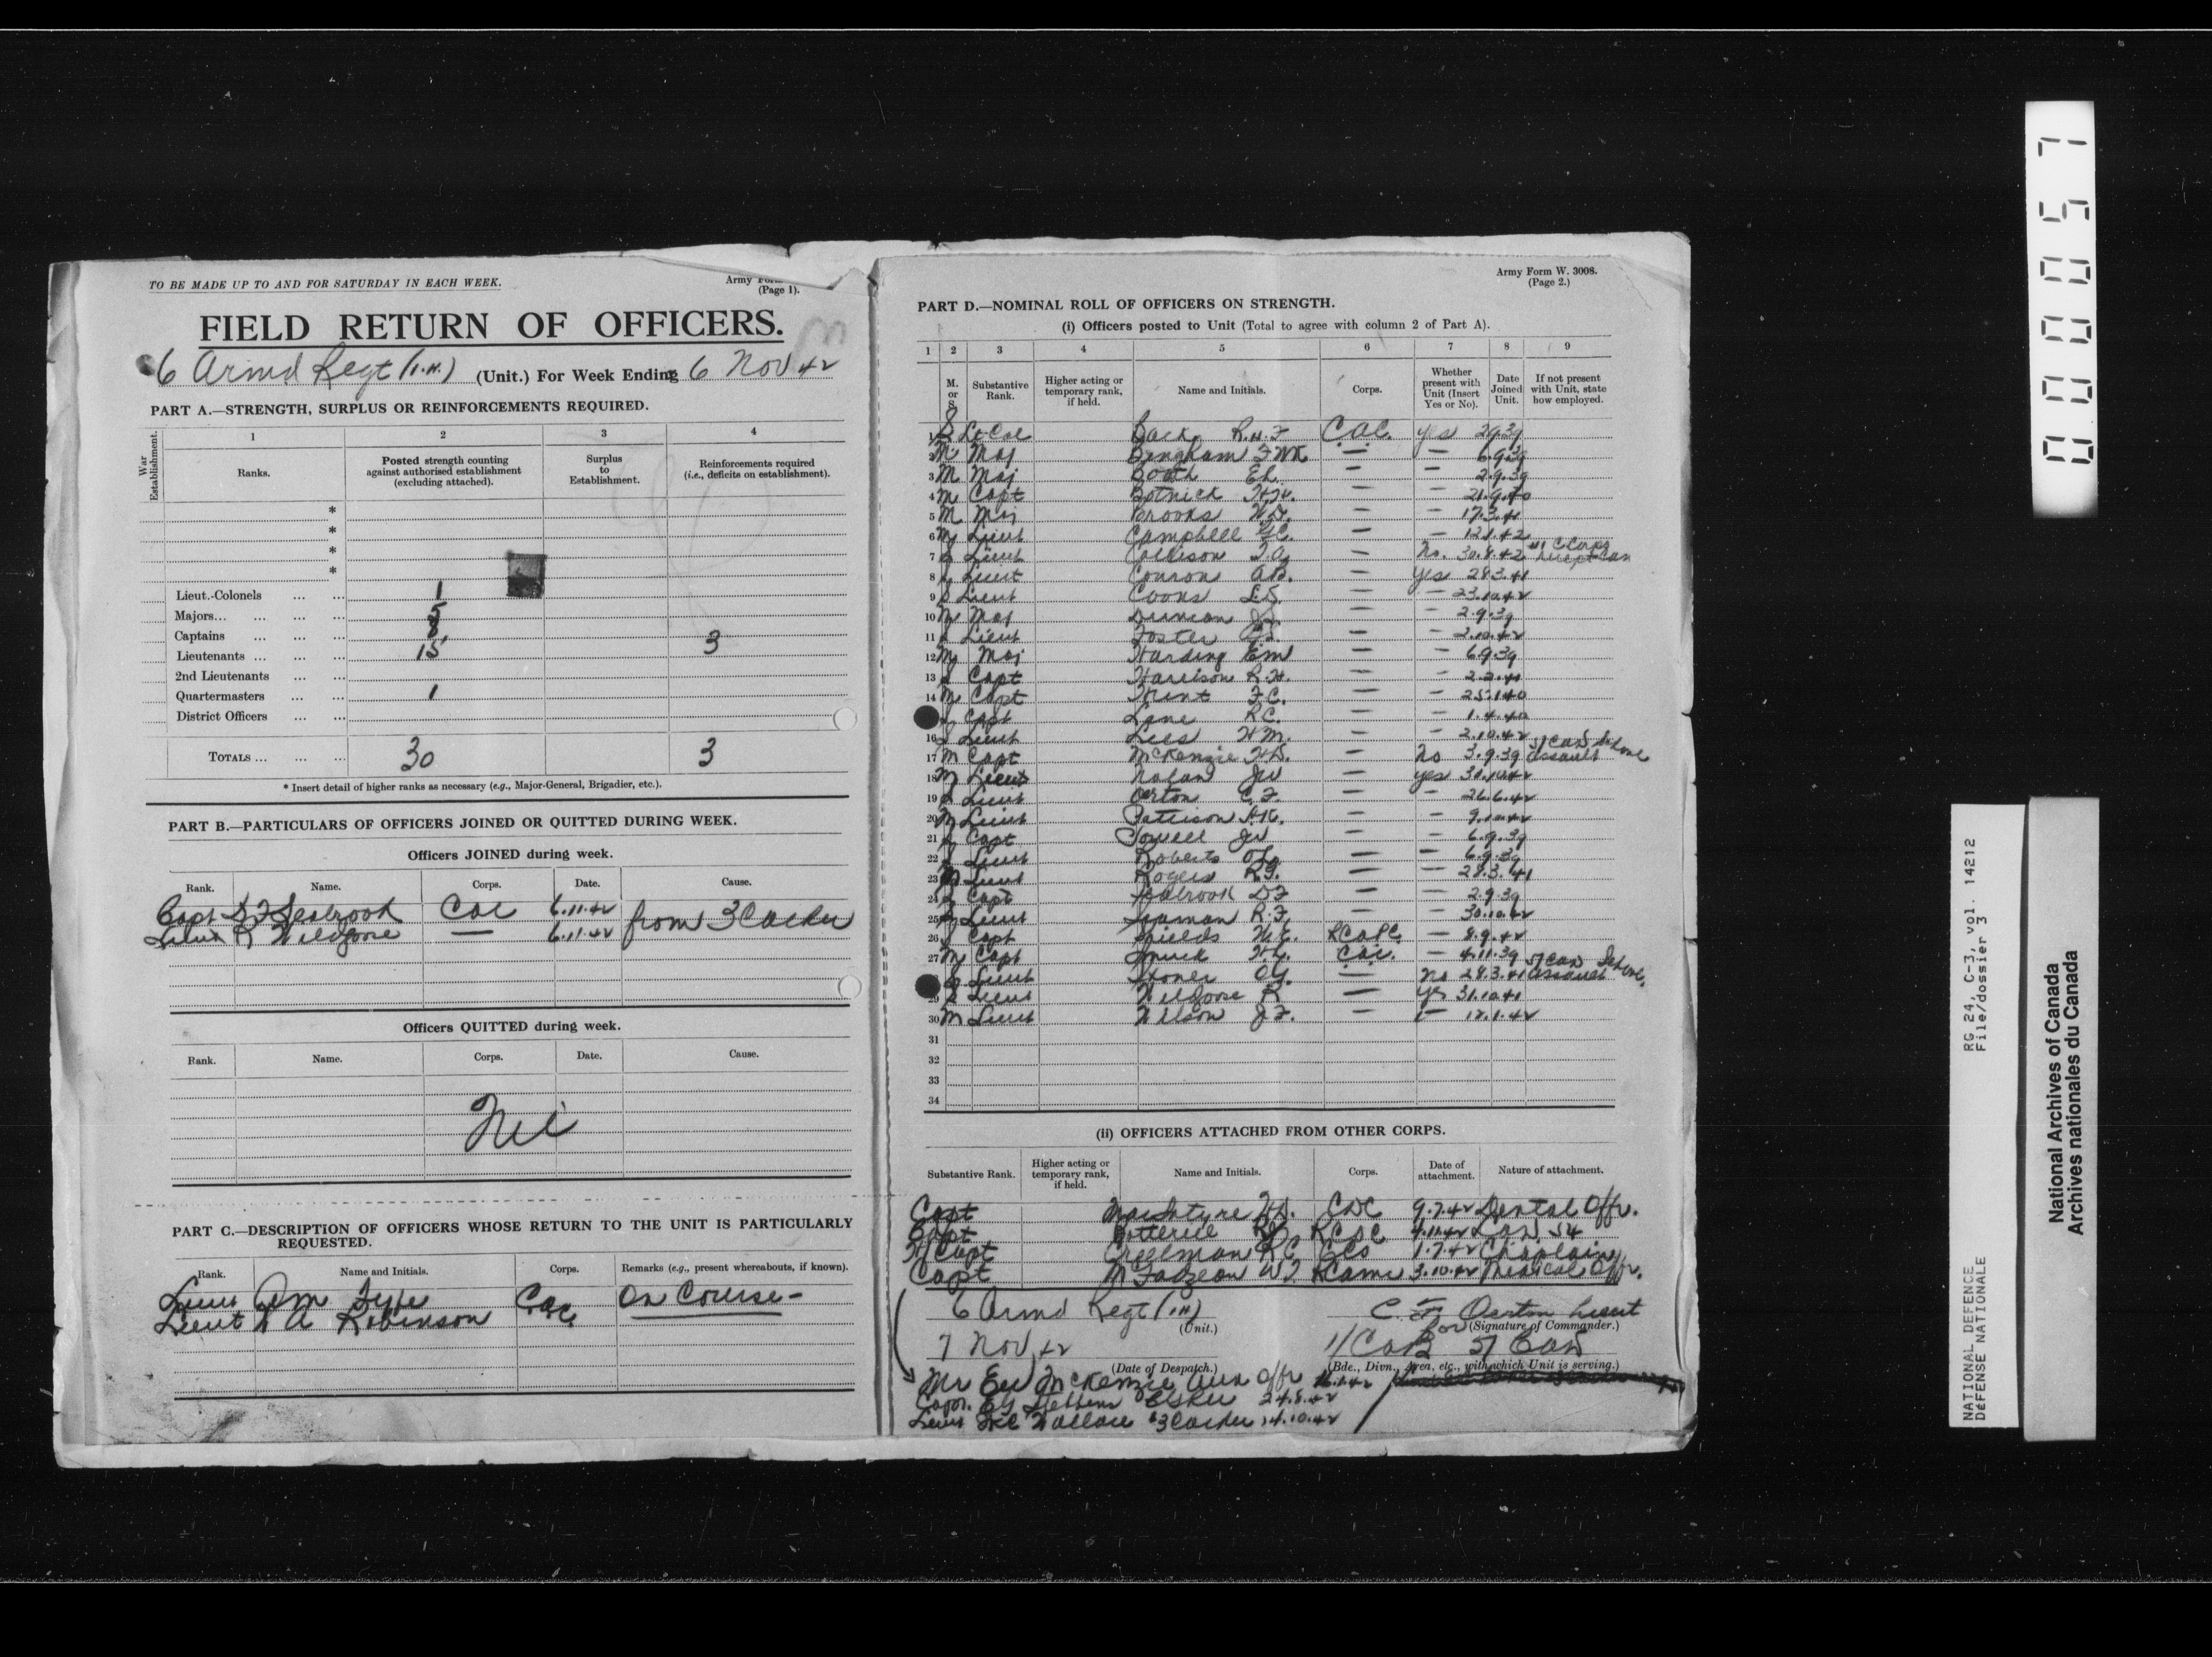 TO BE MADE UP TO AND FOR SATURDAY IN EACH WEEK.
Army
(Page 1).
FIELD RETURN OF OFFICERS.
6 Armd Regt (1.H.) (Unit.) For Week Ending 6 Nov 42
PART A.—STRENGTH, SURPLUS OR REINFORCEMENTS REQUIRED.
War Establishment.
1 2 3 4
Ranks.
Posted strength counting against authorised establishment (excluding attached).
Surplus to Establishment.
Reinforcements required (i.e., deficits on establishment).
*
*
*
*
Lieut.-Colonels ... ... 1
Majors... ... ... ... 5
Captains ... ... ... 3
Lieutenants ... ... ... 15
2nd Lieutenants ... ...
Quartermasters ... ... 1
District Officers ... ...
TOTALS ... ... ... 30 3
* Insert detail of higher ranks as necessary (e.g., Major-General, Brigadier, etc.).
PART B.—PARTICULARS OF OFFICERS JOINED OR QUITTED DURING WEEK.
Officers JOINED during week.
Rank. Name. Corps. Date. Cause.
Capt D F Seabrook CAC 6.11.42 from 3 Cacru
Lieut R Wildgoose — 6.11.42
Officers QUITTED during week.
Rank. Name. Corps. Date. Cause.
Nil
PART C.—DESCRIPTION OF OFFICERS WHOSE RETURN TO THE UNIT IS PARTICULARLY REQUESTED.
Rank. Name and Initials. Corps. Remarks (e.g., present whereabouts, if known).
Lieut On Course —
Lieut W A Robinson CAC
Army Form W. 3008.
(Page 2.)
PART D.—NOMINAL ROLL OF OFFICERS ON STRENGTH.
(i) Officers posted to Unit (Total to agree with column 2 of Part A).
1 2 3 4 5 6 7 8 9
M. or S.
Substantive Rank.
Higher acting or temporary rank, if held.
Name and Initials.
Corps.
Whether present with Unit (Insert Yes or No).
Date Joined Unit.
If not present with Unit, state how employed.
1 S Lt-Col Back R.H.F C.A.C. yes 2.9.39
2 M Maj Bingham FWK — — 6.9.39
3 M Maj Booth EL. — — 2.9.39
4 M Capt Botnick — — 21.9.40
5 M Maj Brooks W.D. — — 17.3.41
6 M Lieut Campbell — — 12.1.42
7 S Lieut Collison — No. 30.8.42
8 S Lieut Conron A.B. — Yes 28.3.41
9 S Lieut Coons L.S. — — 23.10.42
10 M Maj — — 2.9.39
11 S Lieut Foster — — 2.10.42
12 M Maj Harding EM — — 6.9.39
13 S Capt Harrison R.H. — — 2.2.41
14 M Capt Hunt F.C. — —
S Capt Lane R.C. — — 1.4.40
16 S Lieut Lees H.M. — — 2.10.42
17 M Capt McKenzie H.D. — No 3.9.39 5/Can School assault
18 M Lieut Nolan JW — yes 30.10.42
19 S Lieut Oerton C.F. — — 26.6.42
20 M Lieut Pattison H.K. — — 9.10.42
21 S Capt Powell JW — — 6.9.39
22 S Lieut Roberts — — 6.9.39
23 M Lieut Rogers — — 28.3.41
24 S Capt Seabrook DF — — 2.9.39
25 S Lieut Seaman R.F. — — 30.10.42
26 S Capt Shields W.E. RCAPC — 8.9.42
27 M Capt Smuck H.L. CAC. — 4.11.39
S Lieut Stoner O.G. — No 28.3.41 5/Can School assault
29 S Lieut Wildgoose R — yes 31.10.41
30 M Lieut Wilson J.F. — — 12.1.42
31
32
33
34
(ii) OFFICERS ATTACHED FROM OTHER CORPS.
Substantive Rank.
Higher acting or temporary rank, if held.
Name and Initials.
Corps.
Date of attachment.
Nature of attachment.
Capt MacIntyre H.D. CDC 9.7.42 Dental Offr.
Capt Botterill 4.11.42
H/Capt Creelman RC CCS 1.7.42 Chaplain
Capt McFadzeon W.J. RCAMC 3.10.42 Medical Offr.
6 Armd Regt (1H)
(Unit.)
C. F. Oerton Lieut
for (Signature of Commander.)
7 Nov 42
(Date of Despatch.)
1/CAB 5/Can
(Bde., Divn., Area, etc., with which Unit is serving.)
Mr McKenzie Aux Offr
Capt. Stethem 24.8.42
Lieut Wallace 3 Cacru 14.10.42
0000057
RG 24, C-3, vol. 14212
File/dossier 3
NATIONAL DEFENCE
DÉFENSE NATIONALE
National Archives of Canada
Archives nationales du Canada